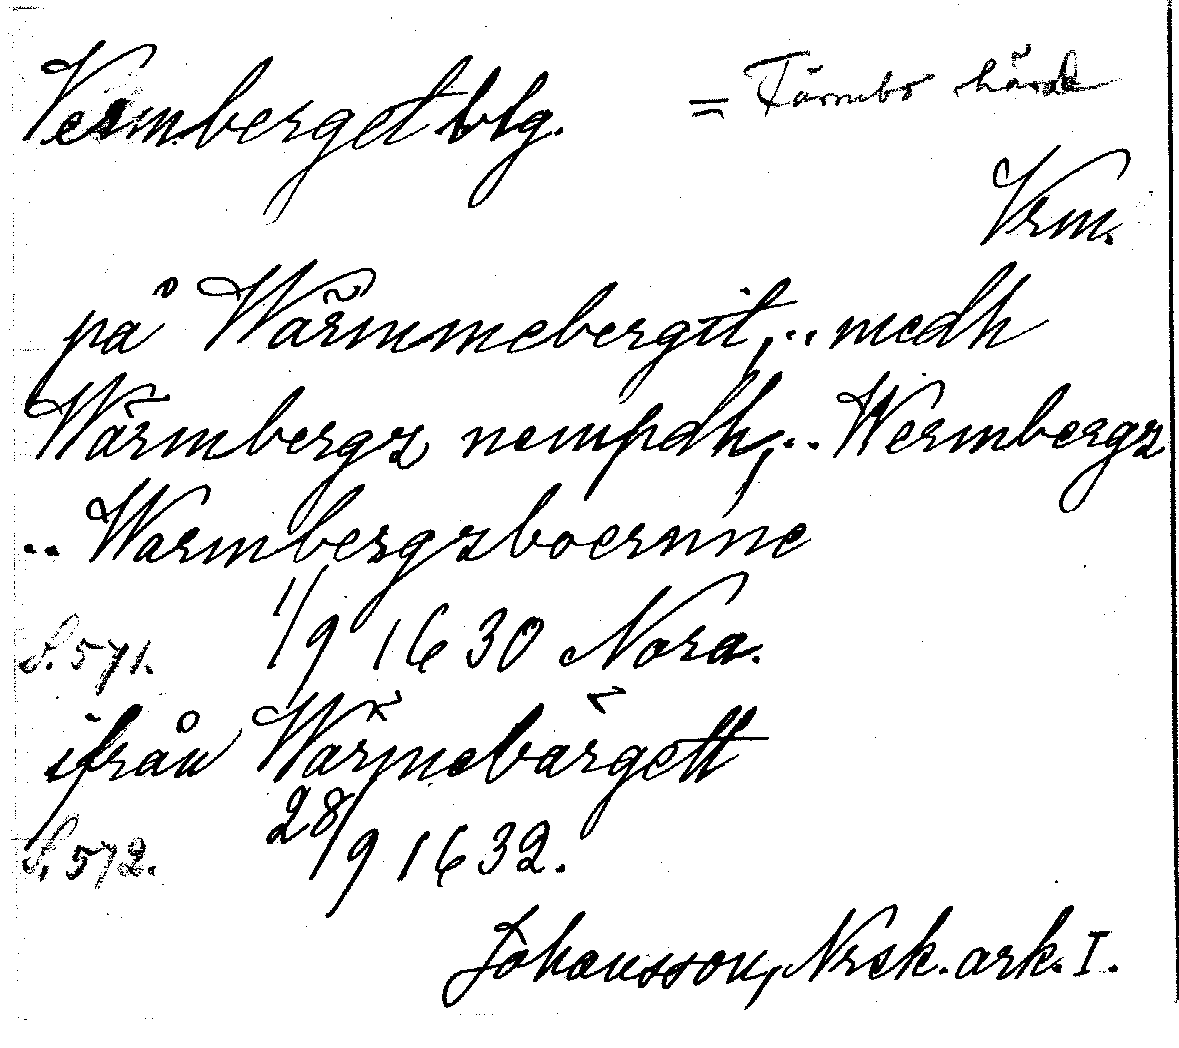 Vermberget blg. = Färnebo härad
Vrm.
på Wärmmebergit,.. medh
Wärmbergz nempdh,.. Wermbergz
.. Warmbergzboernne
S. 571. 1/9 1630 Nora.
ifrån Wärmebärgett
S. 572. 28/9 1632.
Johansson, Nrsk. ark. I.